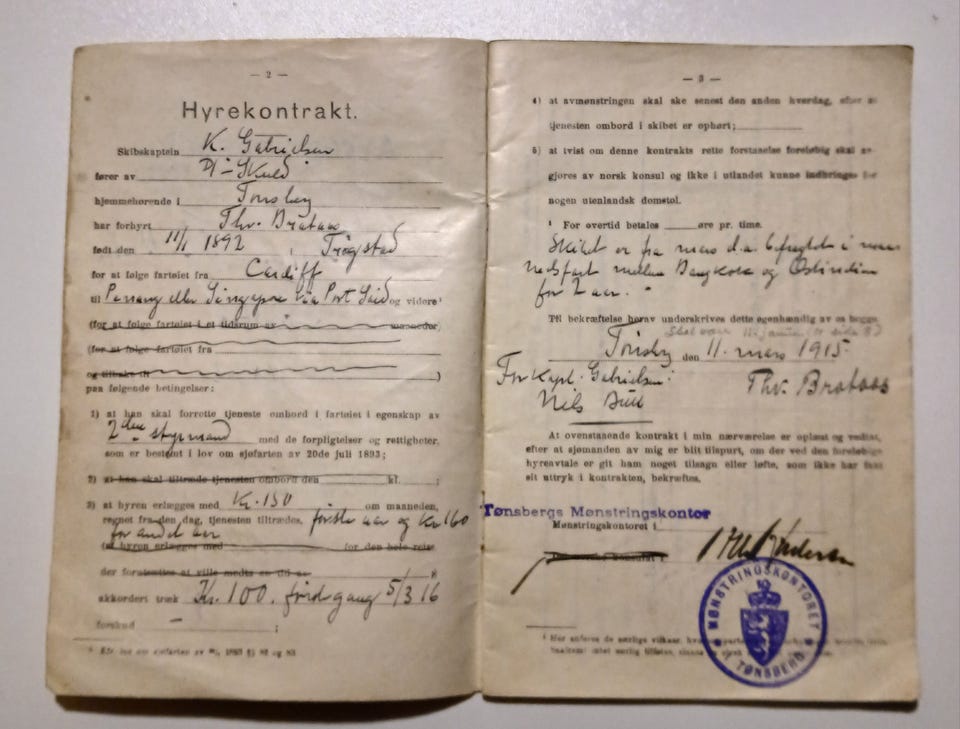 — 2 —
Hyrekontrakt.
Skibskaptein K. Gabrielsen
fører av D/S Skuld
hjemmehørende i Tønsberg
har forhyrt Thv. Brataas
født den 11/1 1892 , Trøgstad
for at følge fartøiet fra Cardiff
til Penang eller Singapore via Port Said og videre¹
(for at følge fartøiet i et tidsrum av maaneder)
(for at følge fartøiet fra
og tilbake til )
paa følgende betingelser:
1) at han skal forrette tjeneste ombord i fartøiet i egenskap av
2den styrmand med de forpligtelser og rettigheter,
som er bestemt i lov om sjøfarten av 20de juli 1893;
2) at han skal tiltræde tjenesten ombord den kl. ;
3) at hyren erlægges med Kr. 150 om maaneden,
regnet fra den dag, tjenesten tiltrædes, første aar og Kr 160
for andet aar
(at hyren erlægges med for den hele reise
der
akkordert træk Kr. 100. første gang 5/3 16
forskud — ;
— 3 —
4) at avmønstringen skal ske senest den anden hverdag, efter at
tjenesten ombord i skibet er ophørt;
5) at tvist om denne kontrakts rette forstaaelse foreløbig skal av-
gjøres av norsk konsul og ikke i utlandet kunne indbringes for
nogen utenlandsk domstol.
¹ For overtid betales øre pr. time.
Skibet er fra mars d.a. befragtet i
mellem Bangkok og Ostindien
for 2 aar.
Til bekræftelse herav underskrives dette egenhændig av os begge.
Skal være
Tønsberg den 11. mars 1915
For Kapt. Gabrielsen:
Nils
Thv. Brataas
At ovenstaaende kontrakt i min nærværelse er oplæst og vedtat,
efter at sjømanden av mig er blit tilspurt, om der ved den foreløbige
hyreavtale er git ham noget tilsagn eller løfte, som ikke har faat
sit uttryk i kontrakten, bekræftes.
Tønsbergs Mønstringskontor
Mønstringskontoret i
MØNSTRINGSKONTORET I TØNSBERG
¹ Her anføres de særlige vilkaar,